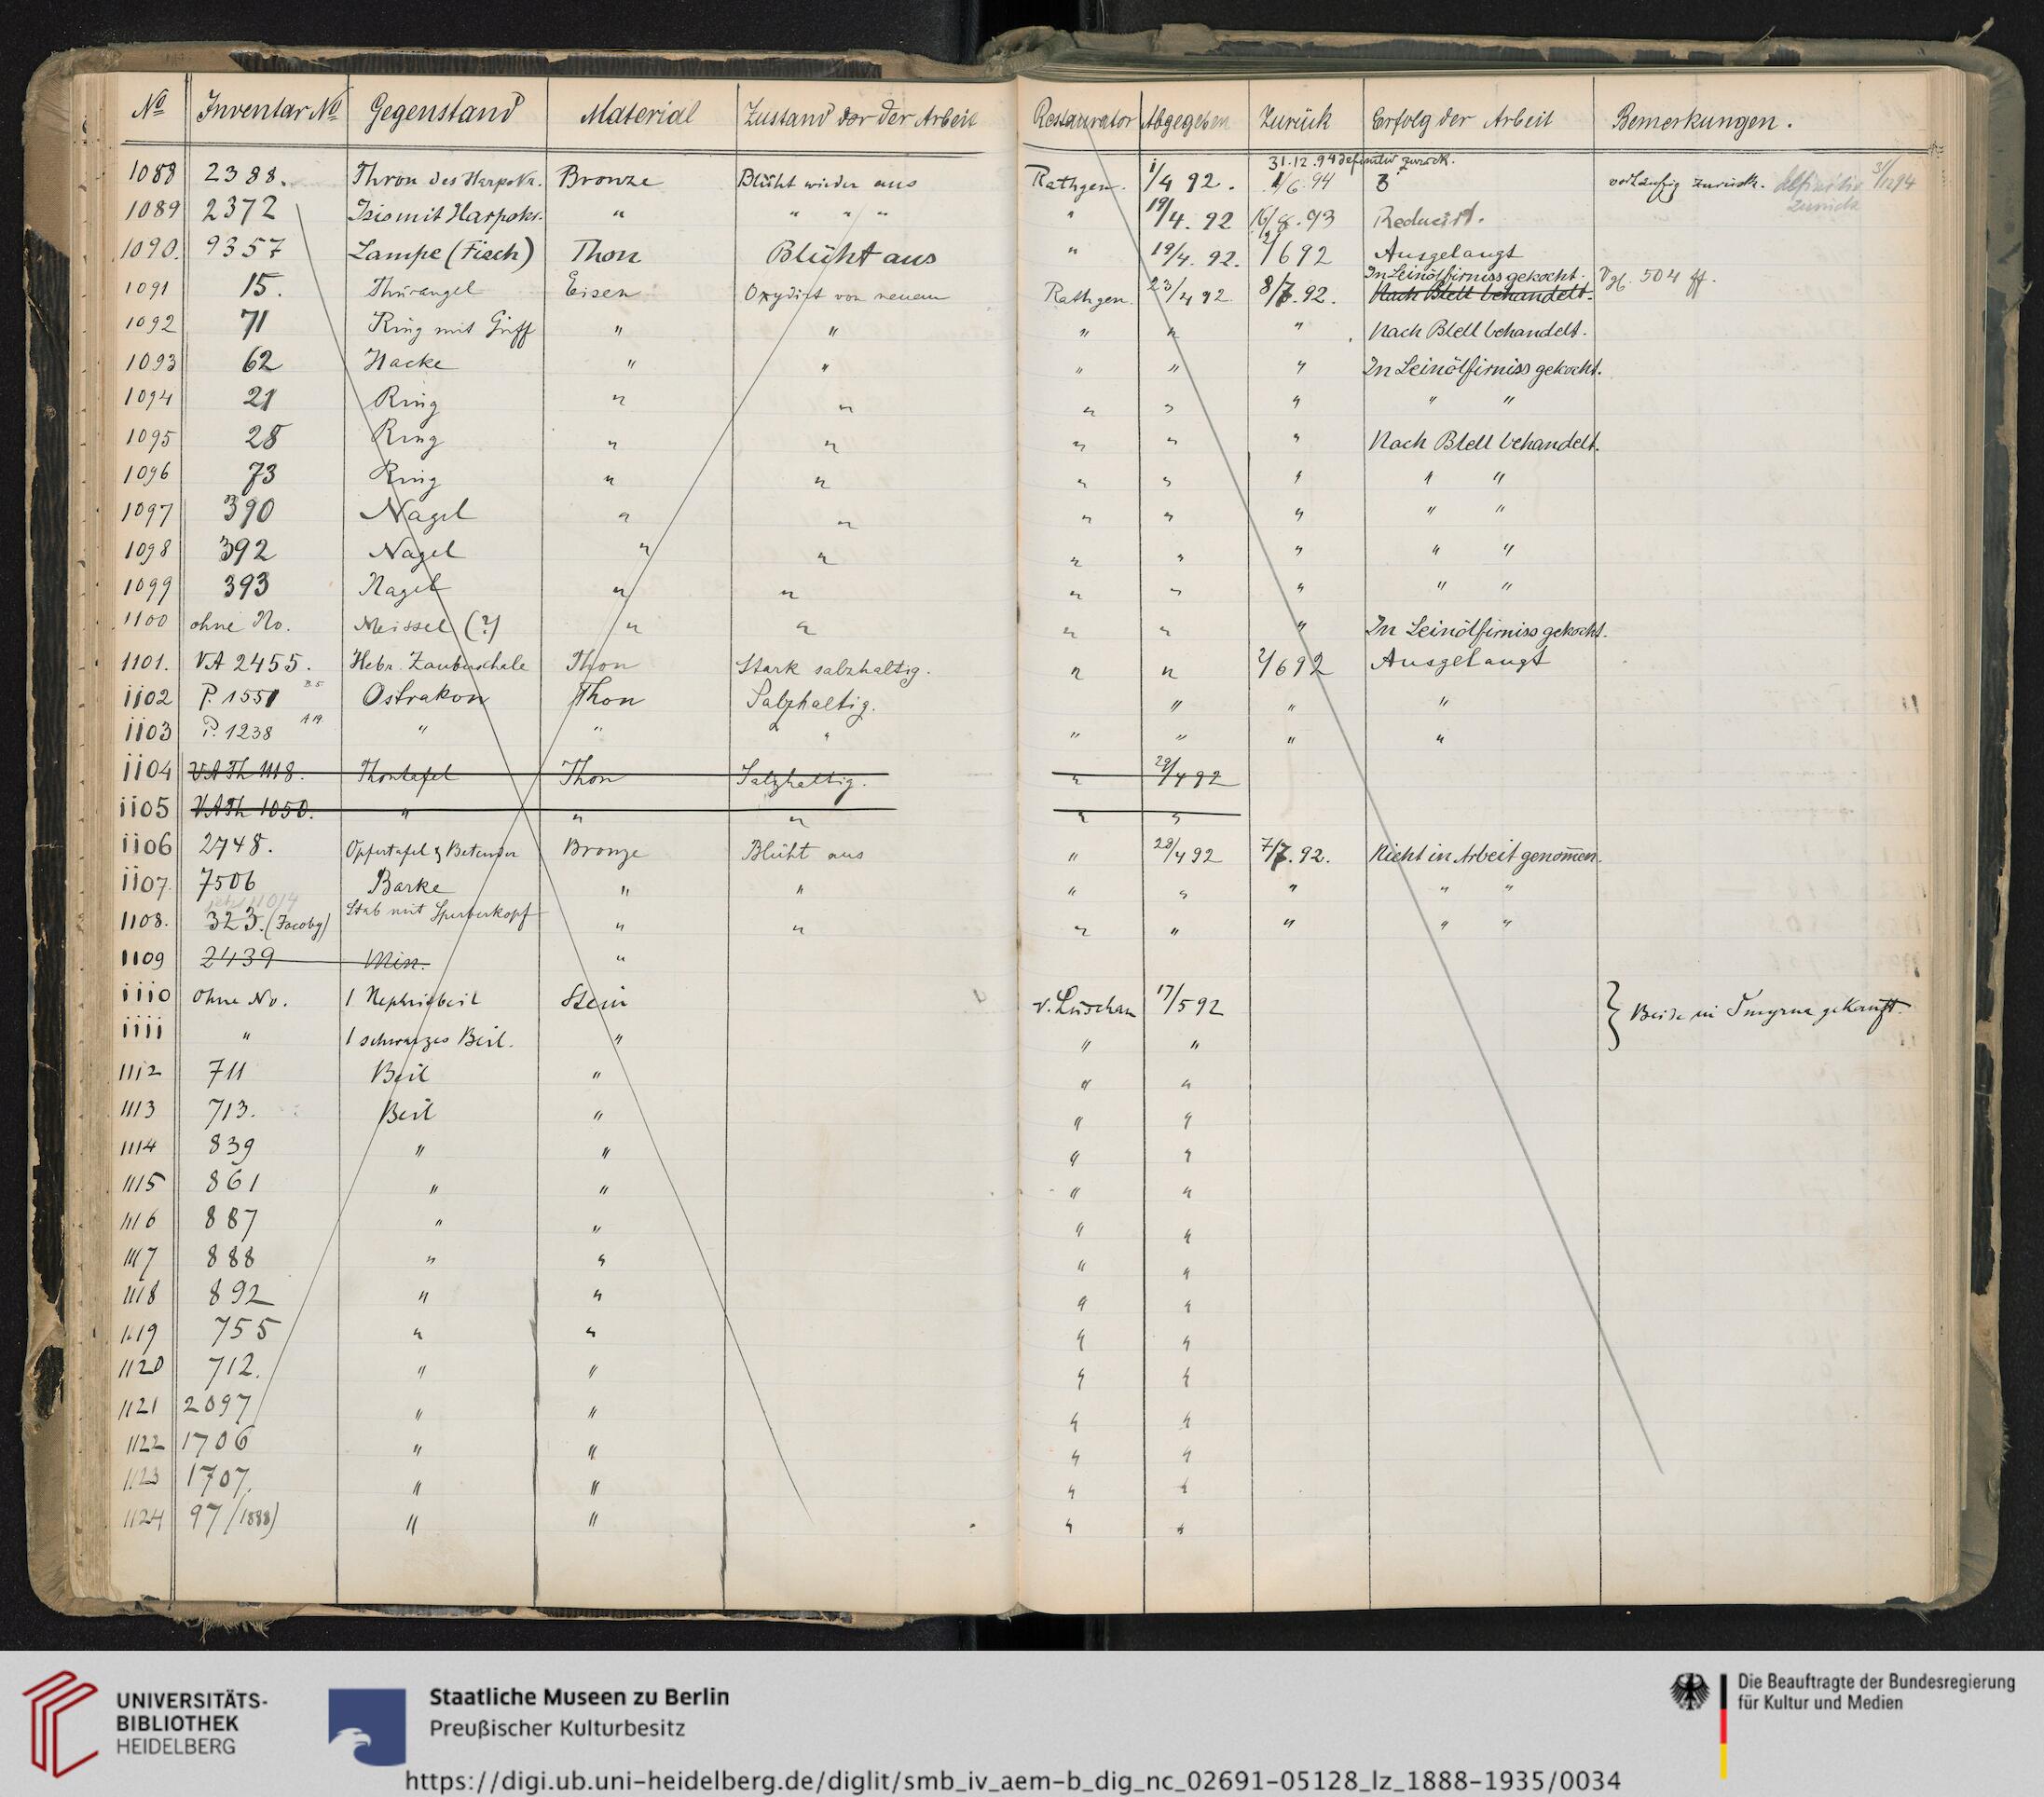 No Inventar No Gegenstand Material Zustand vor der Arbeit Restaurator Abgegeben Zurück Erfolg der Arbeit Bemerkungen.
31.12.94 definitiv zurück.
1088 2388. Thron des Harpokr. Bronze Blüht wieder aus Rathgen. 1/4 92. 1/6 94 3 vorläufig zurück. definitiv 31/12 94 zurück
1089 2372 Isis mit Harpokr. " " " " " 19/4. 92 16/8. 93 Reducirt.
1090. 9357 Lampe (Fisch) Thon Blüht aus " 19/4. 92. 2/6 92 Ausgelaugt
In Leinölfirniss gekocht.
1091 15. Thürangel Eisen Oxydirt von neuem Rathgen. 23/4 92 8/7. 92. Nach Blell behandelt. Vgl. 504 ff.
1092 71 Ring mit Griff " " " " " Nach Blell behandelt.
1093 62 Hacke " " " " " In Leinölfirniss gekocht.
1094 21 Ring " " " " " " "
1095 28 Ring " " " " " Nach Blell behandelt.
1096 73 Ring " " " " " " "
1097 390 Nagel " " " " " " "
1098 392 Nagel " " " " " " "
1099 393 Nagel " " " " " " "
1100 ohne No. Meissel (?) " " " " " In Leinölfirniss gekocht.
1101. VA 2455. Hebr. Zauberschale Thon Stark salzhaltig. " " 2/6 92 Ausgelaugt
1102 P. 1551 Ostrakon Thon Salzhaltig. " " "
1103 P. 1238 " " " " " " "
1104 VA Th 1118. Thontafel Thon Salzhaltig. " 29/4 92
1105 VATh 1050. " " " " "
1106 2748. Opfertafel & Betender Bronze Blüht aus " 28/4 92 7/7. 92. Nicht in Arbeit genommen.
1107. 7506 Barke " " " " " " "
jetzt 11014
1108. 323. (Jacoby) Stab mit Sperberkopf " " " " " " "
1109 2439 Min. "
1110 ohne No. 1 Nephritbeil Stein v. Luschan 17/5 92 } Beide in Smyrna gekauft.
1111 " 1 schwarzes Beil. " " "
1112 711 Beil " " "
1113 713. Beil " " "
1114 839 " " " "
1115 861 " " " "
1116 887 " " " "
1117 888 " " " "
1118 892 " " " "
1119 755 " " " "
1120 712. " " " "
1121 2097 " " " "
1122 1706 " " " "
1123 1707. " " " "
1124 97/1888) " " " "
UNIVERSITÄTS-
BIBLIOTHEK
HEIDELBERG
Staatliche Museen zu Berlin
Preußischer Kulturbesitz
Die Beauftragte der Bundesregierung
für Kultur und Medien
https://digi.ub.uni-heidelberg.de/diglit/smb_iv_aem-b_dig_nc_02691-05128_lz_1888-1935/0034